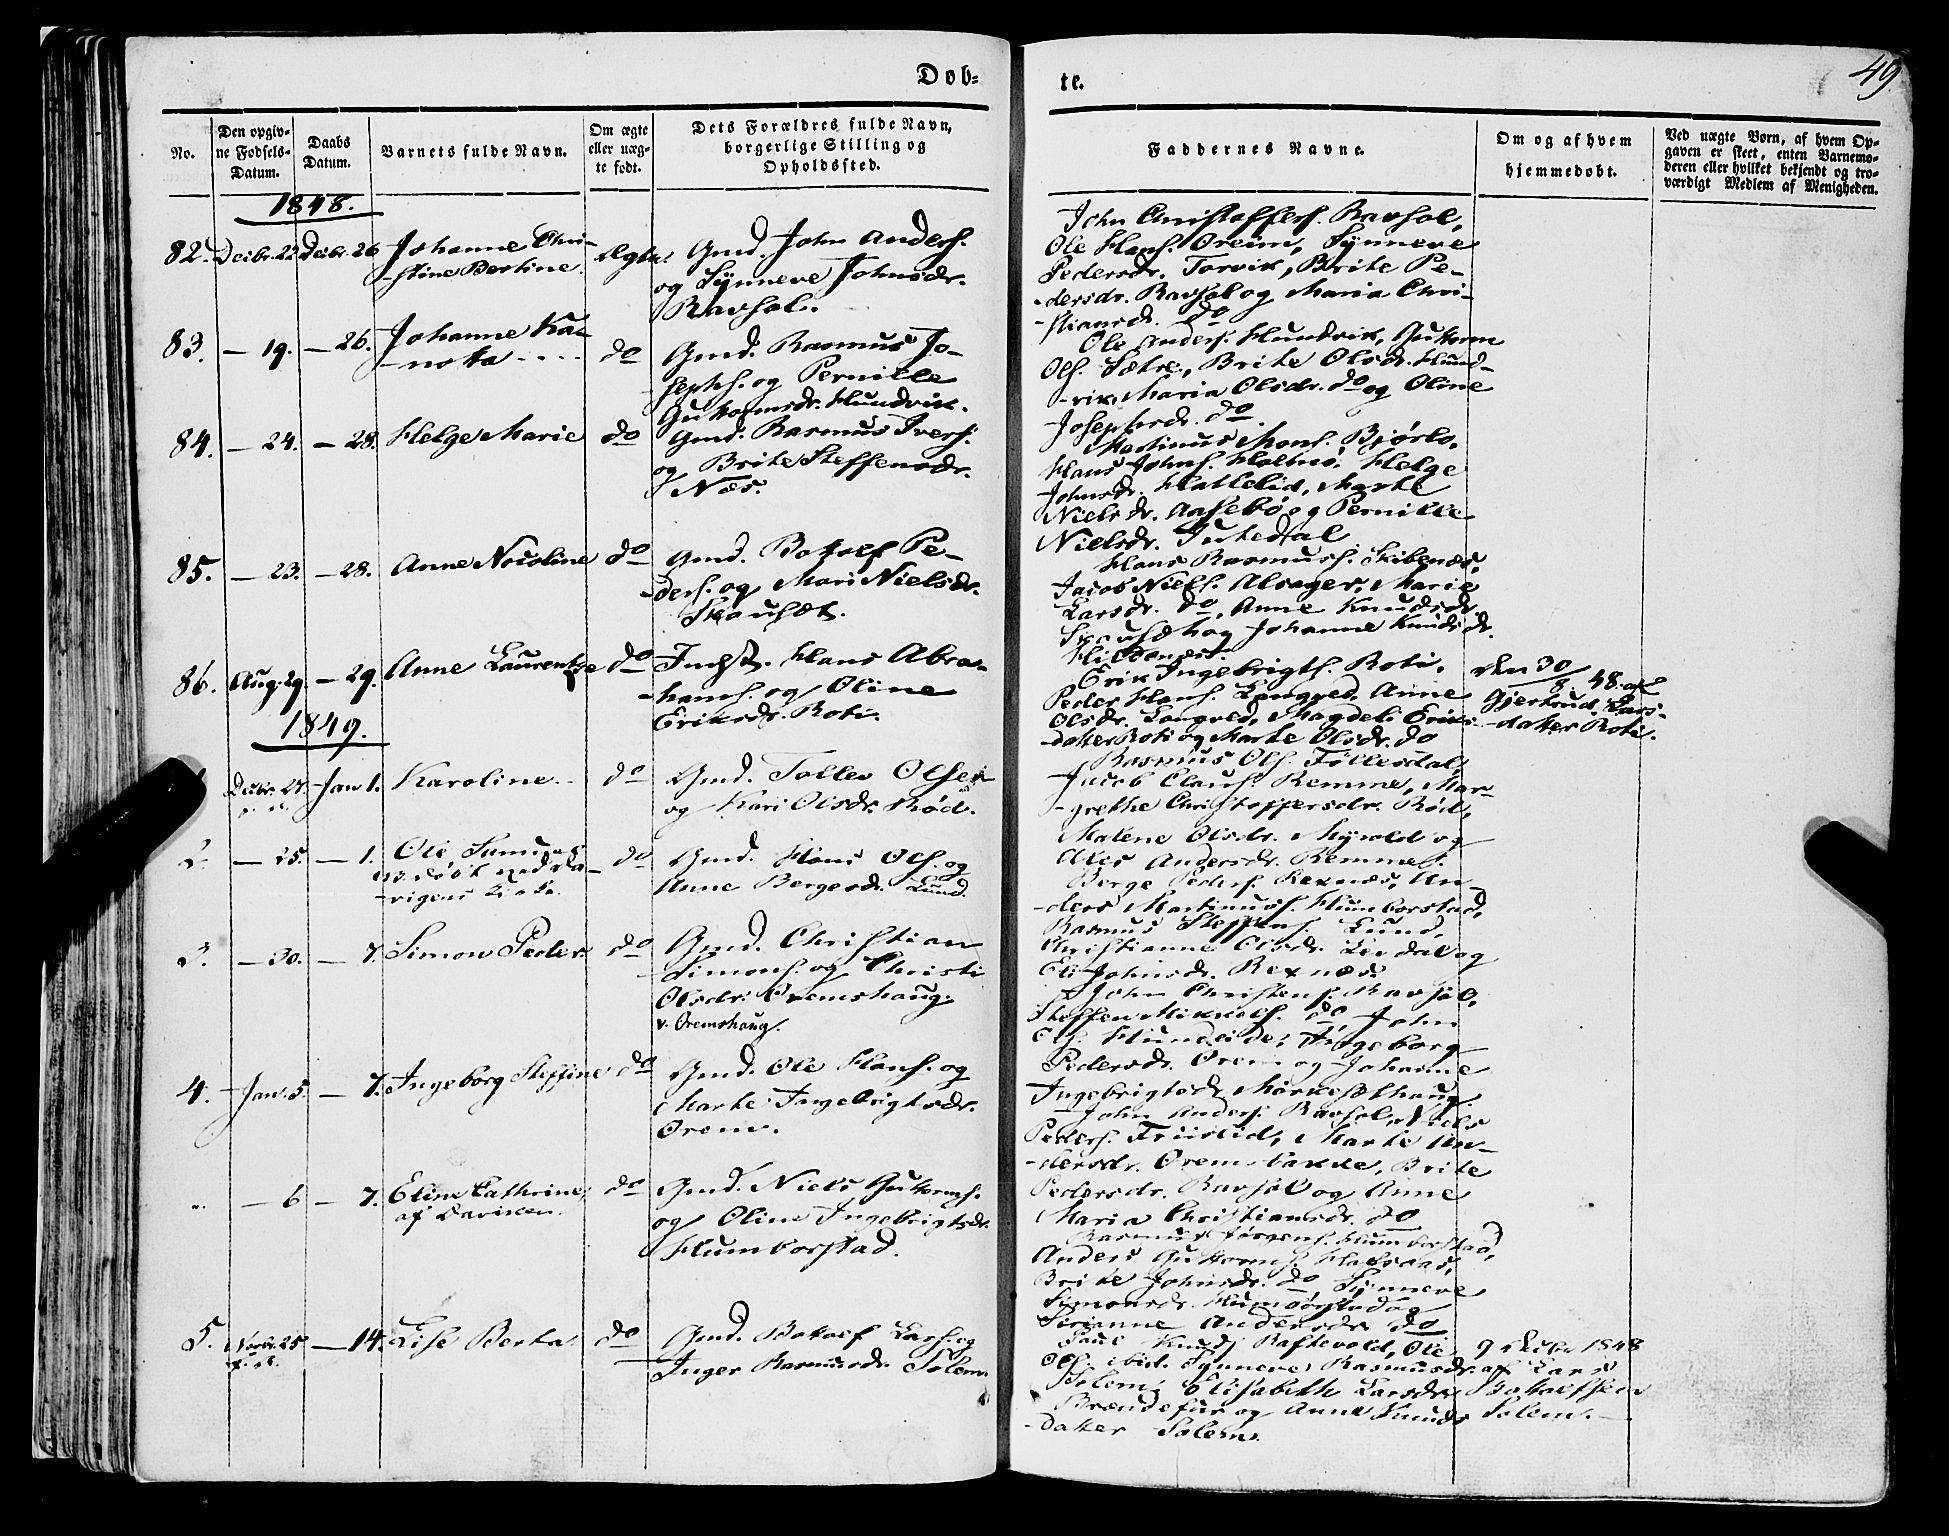 Døb-
te.
49
No.
Den opgiv-
ne Fødsels-
Datum.
Daabs
Datum.
Barnets fulde Navn.
Om ægte
eller uæg-
te født.
Dets Forældres fulde Navn,
borgerlige Stilling og
Opholdssted.
Faddernes Navne.
Om og af hvem
hjemmedøbt.
Ved uægte Børn, af hvem Op-
gaven er skeet, enten Barnemo-
deren eller hvilket bekjendt og tro-
værdigt Medlem af Menigheden.
1848.
82. Decbr. 22 Decbr. 26 Johanne Chri-
-stine Bertine. Ægte
Gmd. John Anders.
og Synneve Johnsdr.
Ravsøl.
John Christoffers. Ravsøl,
Ole Hans. Oreim, Synneve
Pedersdr. Torvik, Brite Pe-
-dersdr. Ravsøl og Maria Chri-
-stiansdr. do
83. — 19. — 26. Johanne Ka-
-nota - - - - do
Gmd. Rasmus Jo-
-sephs. og Pernille
Guttormsdr. Hundvik.
Ole Anders. Hundvik, Guttorm
Ols. Sætre, Brite Olsdr. Hund-
-vik, Maria Olsdr. do og Oline
Josephsdr. do.
84. — 24. — 28. Helge Marie do
Gmd. Rasmus Ivers.
og Brite Steffensdr.
Næs.
Martinus Mons. Bjørlo,
Hans Johns. Helge
Johnsdr. Hallelid, Marthe
Nielsdr. Aasebø og Pernille
Nielsdr.
85. — 23. — 28. Anne Nicoline do
Gmd. Botolf Pe-
-ders. og Mari Nielsdr.
Skousæt.
Hans Rasmuss. Skibenæs,
Jacob Niels. Alsager, Marie
Larsdr. do, Anne Knudsdr.
Skousæt og Johanne Knudsdr.
86. Aug. 29. — 29. Anne Laurentze do
Indst. Hans Abra-
-hams. og Oline
Eriksdr. Roti.
Erik Ingebrigts. Roti,
Peder Hans. Langved, Anne
Olsdr. Langved, Magdeli Eriks-
-datter Roti og Marte Olsdr. do
den 30/8 48. af
Gjertrud Lars-
-datter Roti.
1849.
Decbr. 27 Jan 1. Karoline. do
Gmd. Tollev Olsen
og Kari Olsdr. Rød.
Rasmus Ols. Føllesdal,
Jacob Claus. Remme, Mar-
-grethe Christoffersdr. Rød,
Malene Olsdr. Myvold og
Anders dr. Remme.
2. — 25. — 1. Ole
do
Gmd. Hans Ols. og
Anne Bergesdr. Lund.
Berge Peders. Rexnæs, An-
-ders Martinuss. Humborstad,
Rasmus Steffens. Lund,
Christianne Olsdr. Leirdal og
Eli Johnsdr. Rexnæs.
3. — 30. — 7. Simon Peder. do
Gmd. Christian
Simons. og Christi
Olsdr. Oremshaug.
v. Oremshaug.
John Christens. Ravsøl,
Steffen Mikkels. do, John
Ols. Hundeide, Ingeborg
Pedersdr. Orem og Johanne
Ingebrigtsdr. Mørkesæthaug.
4. Jan. 5. — 7. Ingeborg Steffine do
Gmd. Ole Hans. og
Marte Ingebrigtsdr.
Orem.
John Anders. Ravsøl, Niels
Peders. Friislid, Marte An-
-dersdr. Orembakke, Brite
Pedersdr. Ravsøl og Anne
Maria Christiansdr. do
— 6 — 7. Eline Cathrine,
af Daviken. do
Gmd. Niels Guttorms.
og Oline Ingebrigtsdr.
Humborstad.
Rasmus Jørgens. Humborstad,
Anders Guttorms.
Brite Johnsdr. do, Synneve
Simonsdr. Humborstad og
Andersdr. do
5. Novbr. 25 — 14. Lise Berta. do
Gmd. Botolf Lars. og
Inger Rasmusdr. Solem.
Paul Knuds. Raftevold, Ole
Ols. ibid. Synneve Rasmusdr.
Solem, Elisabeth Larsdr.
og Anne Knuds
-datter Solem.
9 Decbr. 1848
af Lars
Botolfsen
Solem.